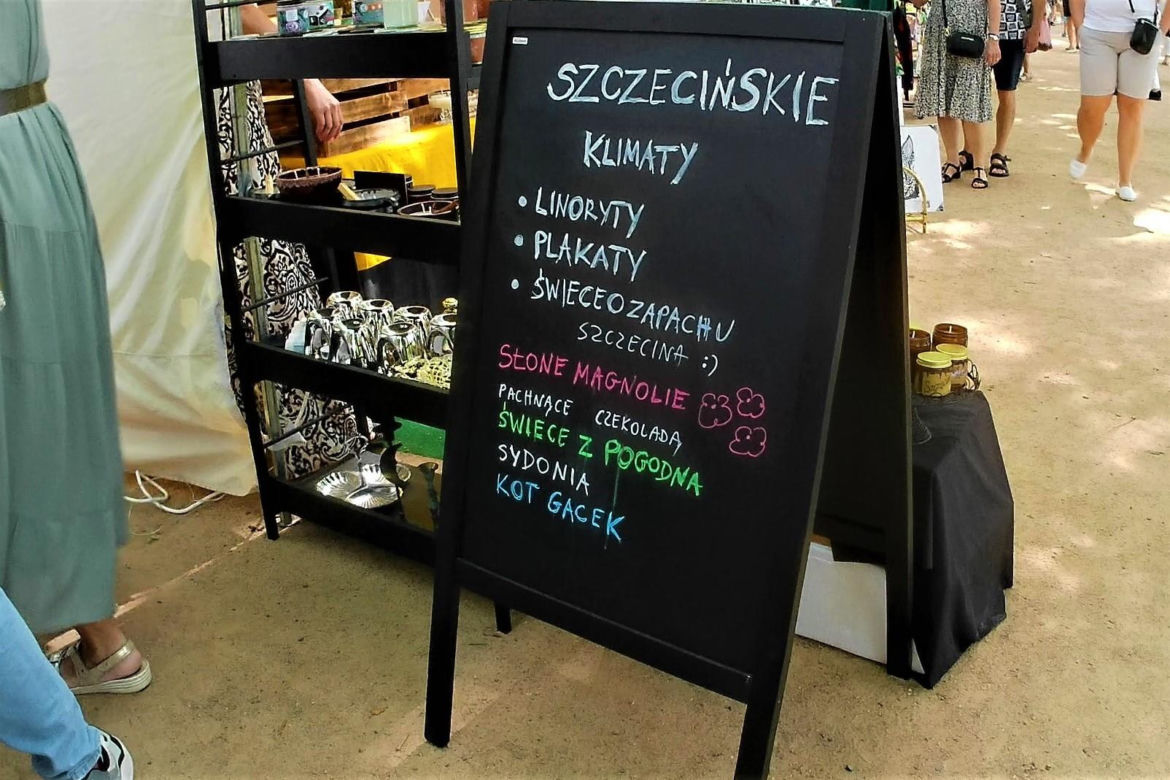 SZCZECIŃSKIE
KLIMATY
• LINORYTY
• PLAKATY
• ŚWIECE O ZAPACHU
SZCZECINA :)
SŁONE MAGNOLIE
PACHNĄCE CZEKOLADĄ
ŚWIECE Z POGODNA
SYDONIA
KOT GACEK